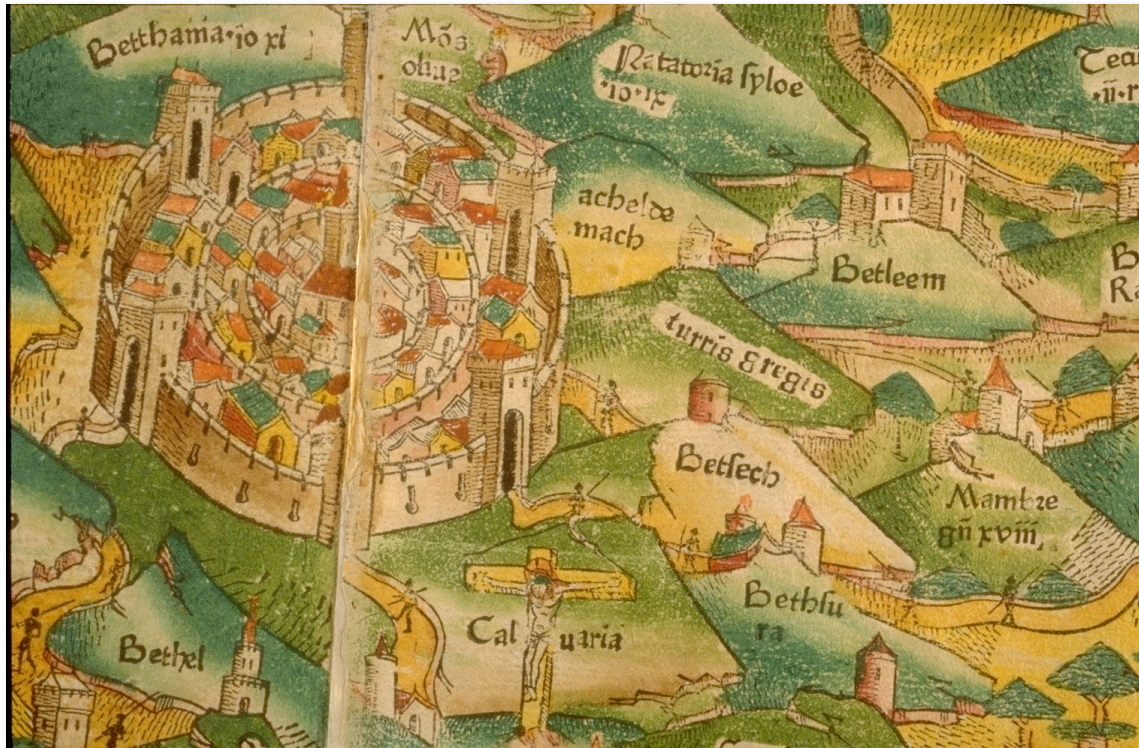 Betthania·io xl
Mõs
oliue
Natatoria syloe
·io·ix
·ii·r
achelde
mach
Betleem
turris gregis
Betsech
Mambre
gñ xviii,
Bethsu
ra
Cal uaria
Bethel